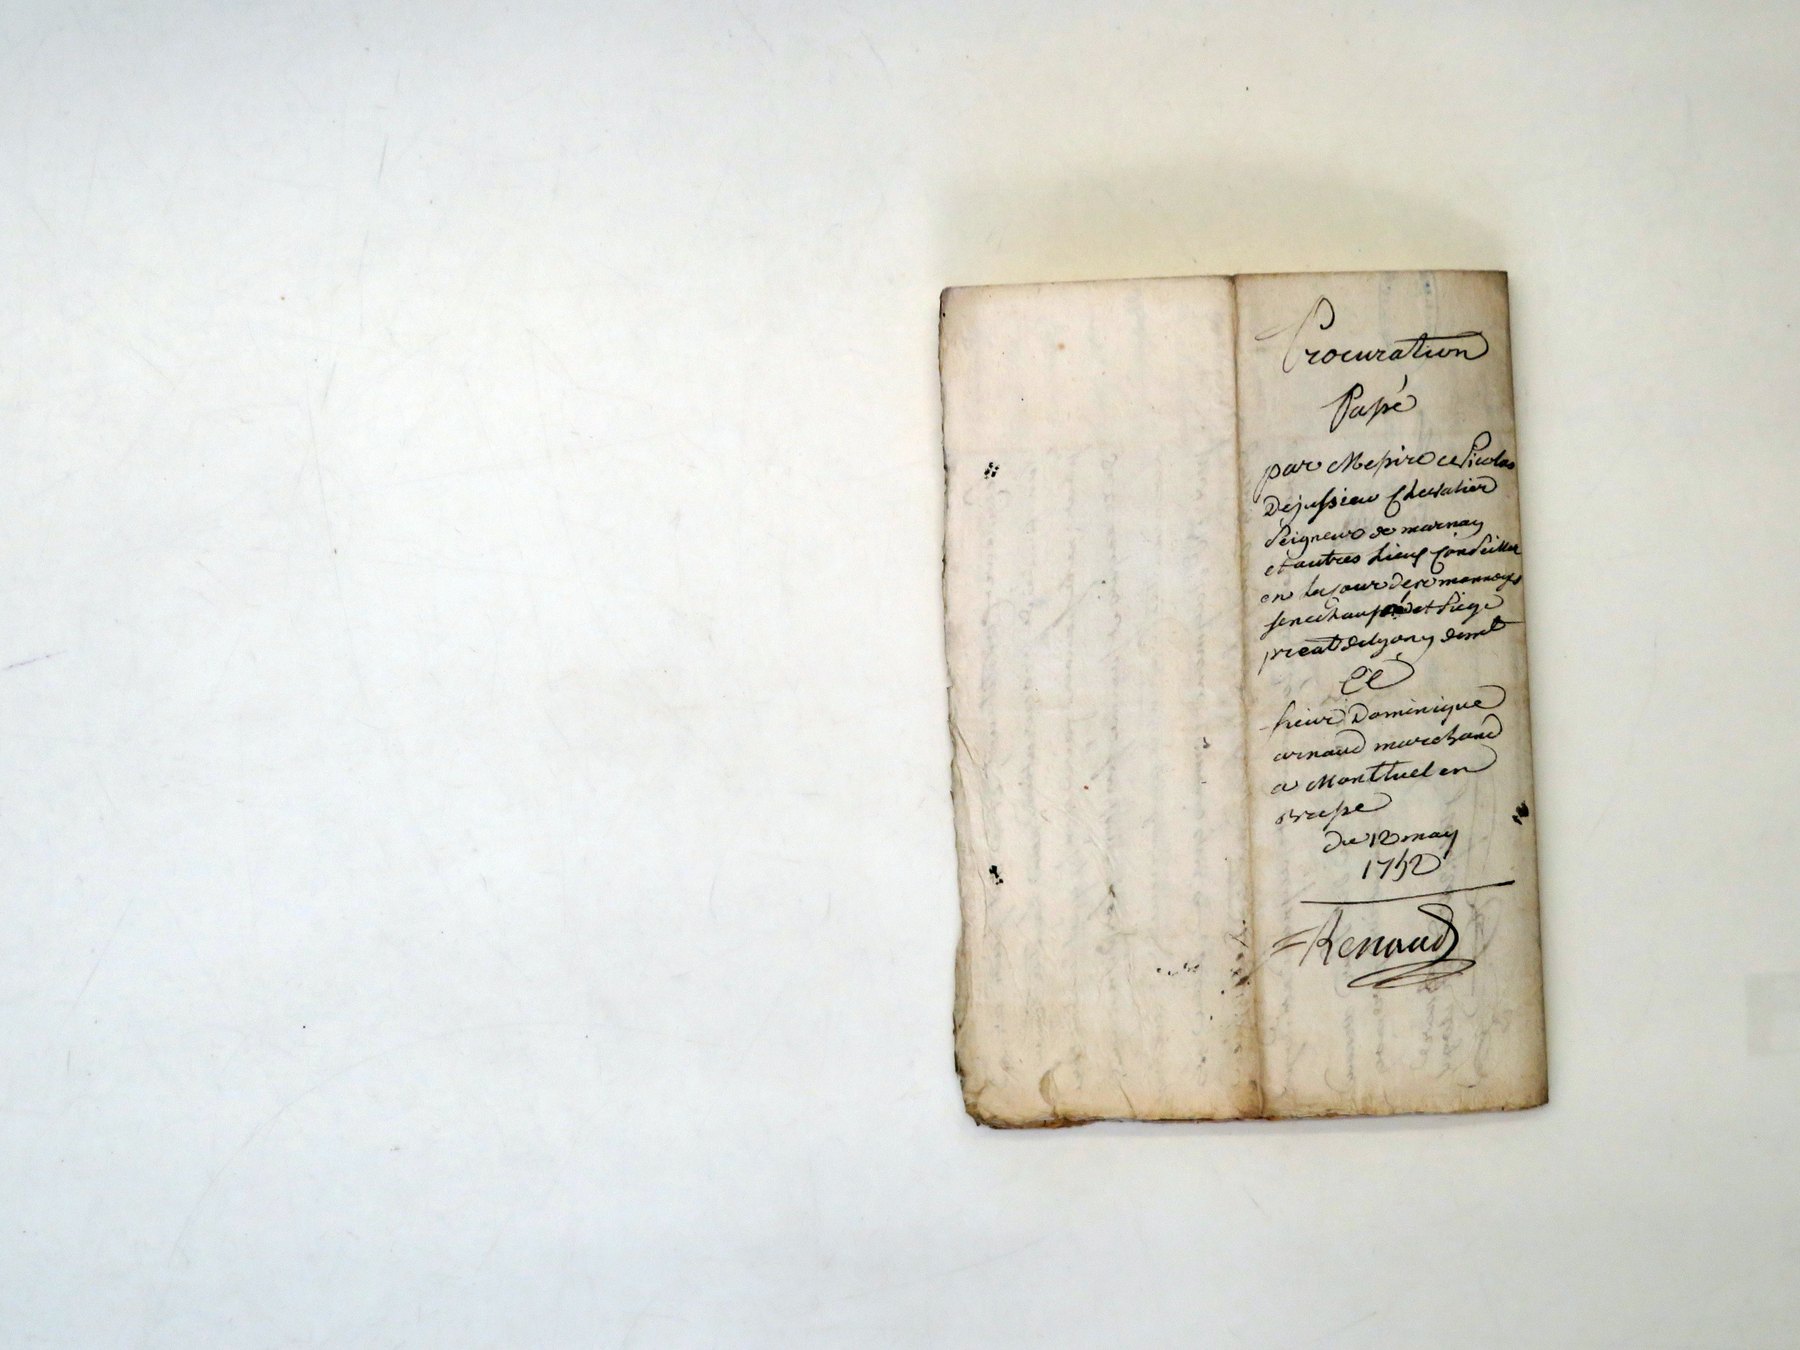 Procuration
Passé
par Messire Nicolas
Dejussieu Chevalier
Seigneur de marnay
et autres lieux Conseiller
en la cour des monnoyes
senechaussé et siege
de Lyon
Et
sieur Dominique
arnaud marchand
a Montluel en
bresse
du 12 may
1752
Renaud